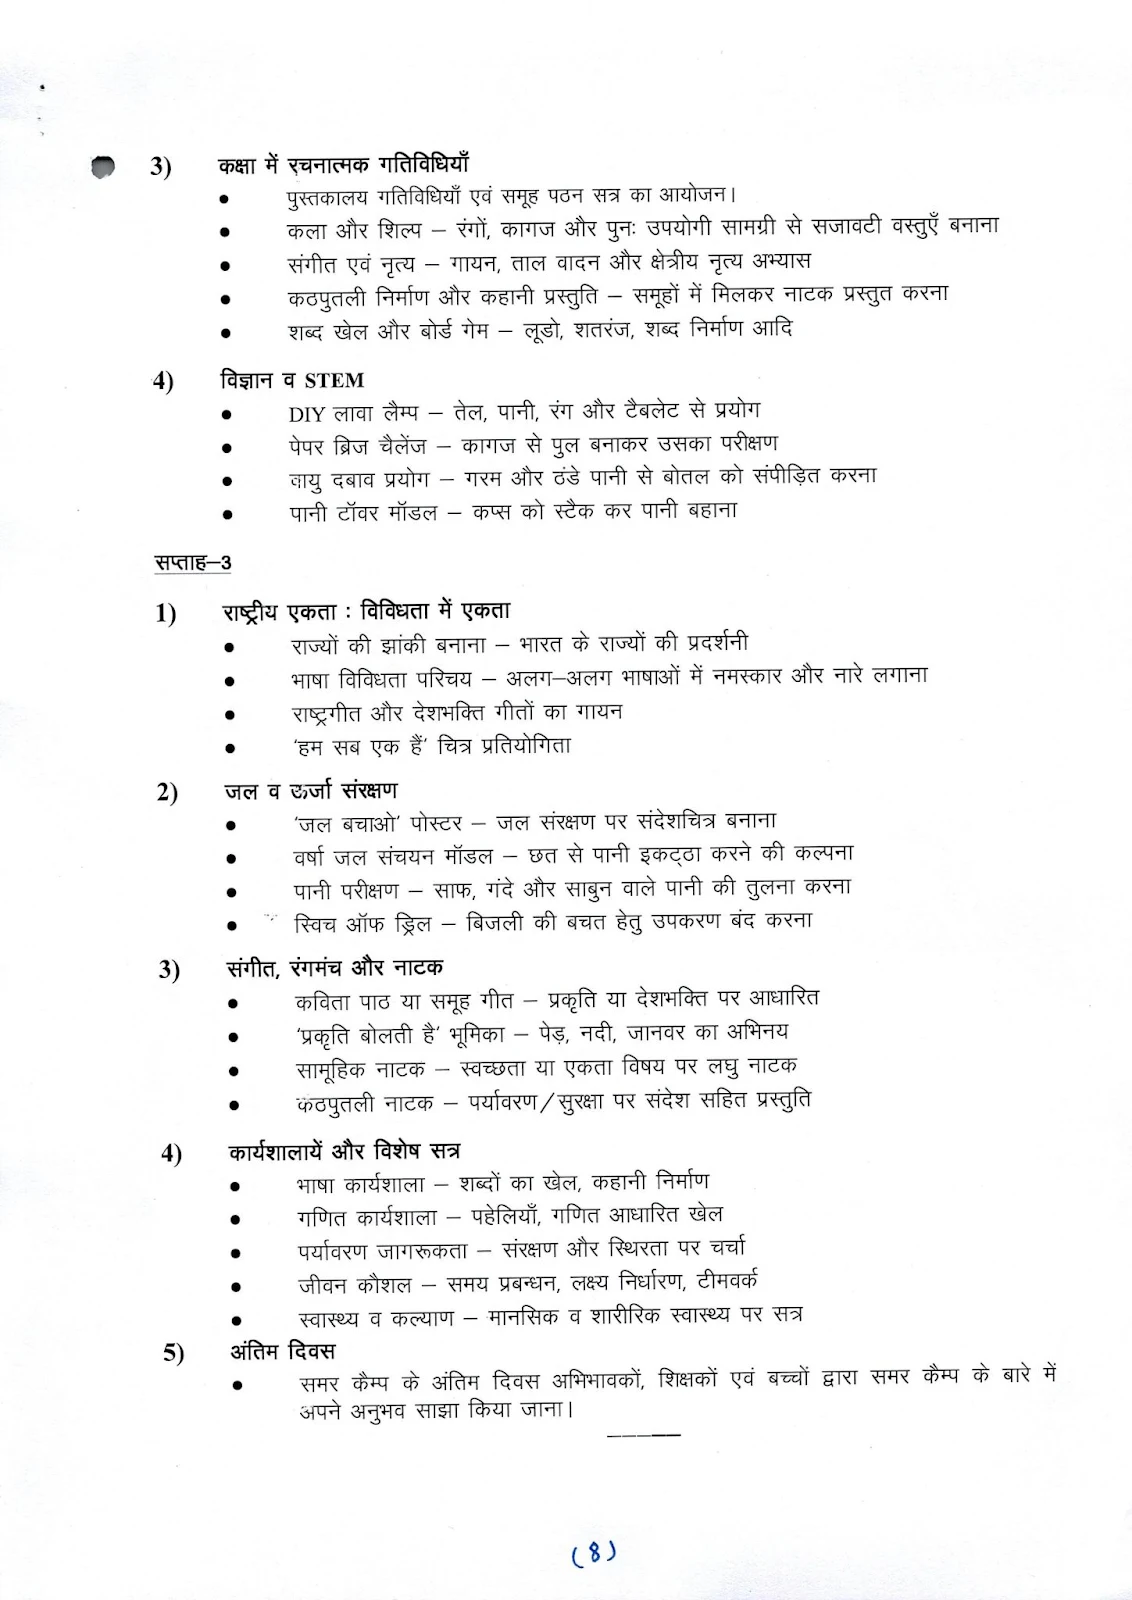 3) कक्षा में रचनात्मक गतिविधियाँ
● पुस्तकालय गतिविधियाँ एवं समूह पठन सत्र का आयोजन।
● कला और शिल्प – रंगों, कागज और पुनः उपयोगी सामग्री से सजावटी वस्तुएँ बनाना
● संगीत एवं नृत्य – गायन, ताल वादन और क्षेत्रीय नृत्य अभ्यास
● कठपुतली निर्माण और कहानी प्रस्तुति – समूहों में मिलकर नाटक प्रस्तुत करना
● शब्द खेल और बोर्ड गेम – लूडो, शतरंज, शब्द निर्माण आदि
4) विज्ञान व STEM
● DIY लावा लैम्प – तेल, पानी, रंग और टैबलेट से प्रयोग
● पेपर ब्रिज चैलेंज – कागज से पुल बनाकर उसका परीक्षण
● वायु दबाव प्रयोग – गरम और ठंडे पानी से बोतल को संपीड़ित करना
● पानी टॉवर मॉडल – कप्स को स्टैक कर पानी बहाना
सप्ताह–3
1) राष्ट्रीय एकता : विविधता में एकता
● राज्यों की झांकी बनाना – भारत के राज्यों की प्रदर्शनी
● भाषा विविधता परिचय – अलग–अलग भाषाओं में नमस्कार और नारे लगाना
● राष्ट्रगीत और देशभक्ति गीतों का गायन
● 'हम सब एक हैं' चित्र प्रतियोगिता
2) जल व ऊर्जा संरक्षण
● 'जल बचाओ' पोस्टर – जल संरक्षण पर संदेशचित्र बनाना
● वर्षा जल संचयन मॉडल – छत से पानी इकट्ठा करने की कल्पना
● पानी परीक्षण – साफ, गंदे और साबुन वाले पानी की तुलना करना
● स्विच ऑफ ड्रिल – बिजली की बचत हेतु उपकरण बंद करना
3) संगीत, रंगमंच और नाटक
● कविता पाठ या समूह गीत – प्रकृति या देशभक्ति पर आधारित
● 'प्रकृति बोलती है' भूमिका – पेड़, नदी, जानवर का अभिनय
● सामूहिक नाटक – स्वच्छता या एकता विषय पर लघु नाटक
● कठपुतली नाटक – पर्यावरण/सुरक्षा पर संदेश सहित प्रस्तुति
4) कार्यशालायें और विशेष सत्र
● भाषा कार्यशाला – शब्दों का खेल, कहानी निर्माण
● गणित कार्यशाला – पहेलियाँ, गणित आधारित खेल
● पर्यावरण जागरूकता – संरक्षण और स्थिरता पर चर्चा
● जीवन कौशल – समय प्रबन्धन, लक्ष्य निर्धारण, टीमवर्क
● स्वास्थ्य व कल्याण – मानसिक व शारीरिक स्वास्थ्य पर सत्र
5) अंतिम दिवस
● समर कैम्प के अंतिम दिवस अभिभावकों, शिक्षकों एवं बच्चों द्वारा समर कैम्प के बारे में
अपने अनुभव साझा किया जाना।
–––––
(8)